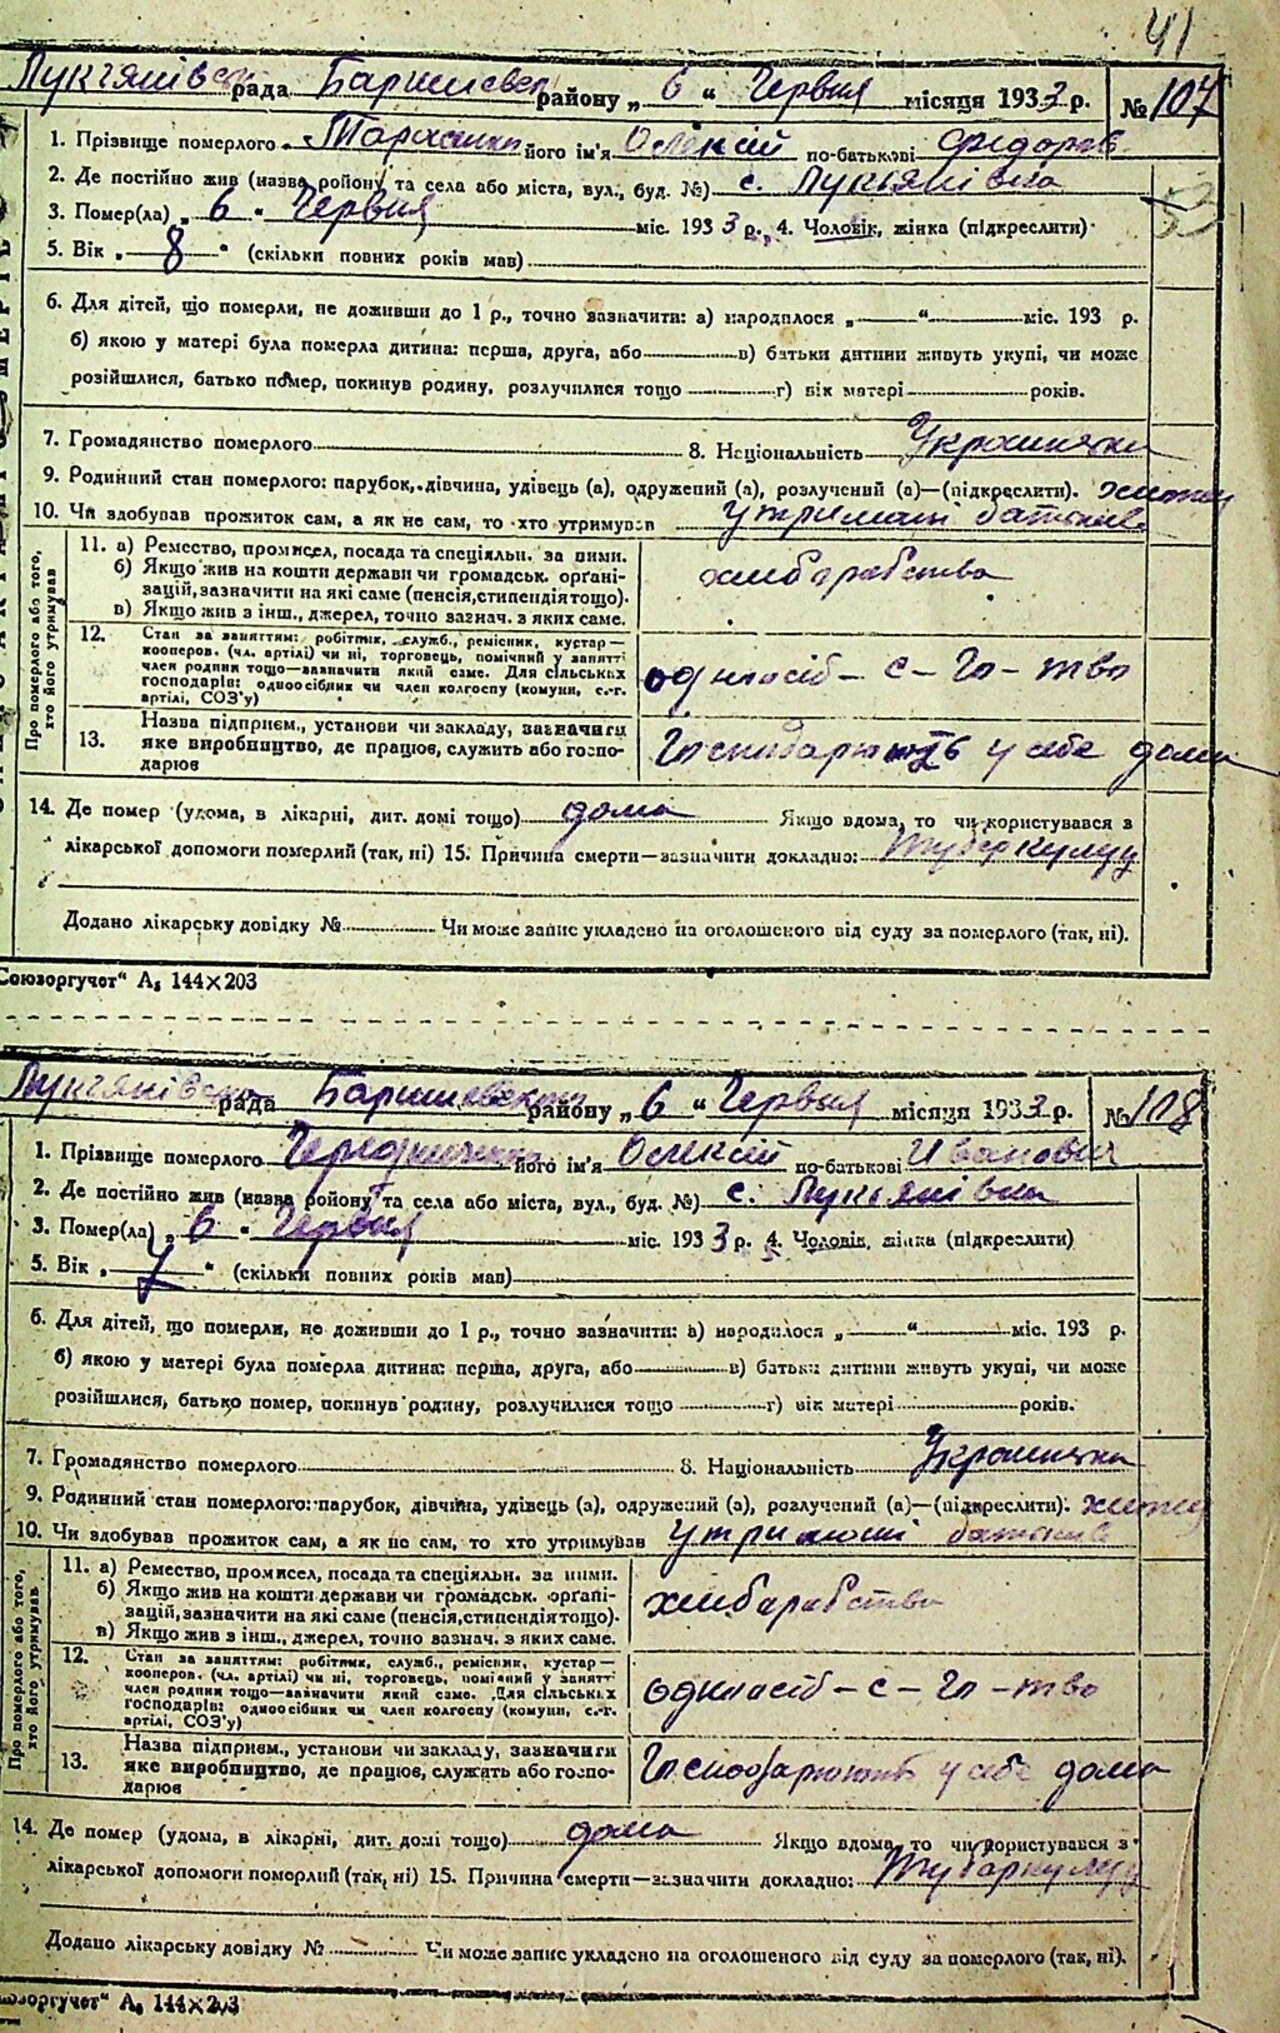 41
Лукгянівськ рада Баришевськ району „ 6 “ Червня місяця 1933 р. № 107
1. Прізвище померлого Тарасенко його ім'я Олексій по-батькові Федоров
2. Де постійно жив (назва ройону та села або міста, вул., буд. №) с. Лукьянівка
53
3. Помер(ла) „ 6 “ Червня міс. 1933 р., 4. Чоловік, жінка (підкреслити)
5. Вік „ 8 “ (скільки повних років мав)
6. Для дітей, що померли, не доживши до 1 р., точно зазначити: а) народилося „ “ міс. 193 р.
б) якою у матері була померла дитина: перша, друга, або в) батьки дитини живуть укупі, чи може
розійшлися, батько помер, покинув родину, розлучилися тощо г) вік матері років.
7. Громадянство померлого 8. Національність Украинська
9. Родинний стан померлого: парубок, дівчина, удівець (а), одружений (а), розлучений (а)—(підкреслити).
10. Чи здобував прожиток сам, а як не сам, то хто утримував утримані батьків
Про померлого або того, хто його утримував
11. а) Ремество, промисел, посада та спеціяльн. за ними.
б) Якщо жив на кошти держави чи громадськ. органі-
зацій, зазначити на які саме (пенсія, стипендія тощо).
в) Якщо жив з інш., джерел, точно зазнач. з яких саме.
хлибарабство
12. Стан за заняттям: робітник, служб., ремісник, кустар—
кооперов. (чл. артілі) чи ні, торговець, помічний у занятті
член родини тощо—зазначити який саме. Для сільських
господарів: одноосібник чи член колгоспу (комуни, с.-г.
артілі, СОЗ'у)
одноосіб - с - го - тво
13. Назва підприєм., установи чи закладу, зазначити
яке виробництво, де працює, служить або госпо-
дарює
у себе дома
14. Де помер (удома, в лікарні, дит. домі тощо) дома Якщо вдома, то чи користувався з
лікарської допомоги померлий (так, ні) 15. Причина смерти—зазначити докладно: туберкулуз
Додано лікарську довідку № Чи може запис укладено на оголошеного від суду за померлого (так, ні).
Союзоргучет“ А₅ 144×203
Лукгянівська рада Баришевського району „ 6 “ Червня місяця 1933 р. № 108
1. Прізвище померлого Чередниченко його ім'я Олексій по-батькові Иванович
2. Де постійно жив (назва ройону та села або міста, вул., буд. №) с. Лукьянівка
3. Помер(ла) „ 6 “ Червня міс. 1933 р. 4. Чоловік, жінка (підкреслити)
5. Вік „ 7 “ (скільки повних років мав)
6. Для дітей, що померли, не доживши до 1 р., точно зазначити: а) народилося „ “ міс. 193 р.
б) якою у матері була померла дитина: перша, друга, або в) батьки дитини живуть укупі, чи може
розійшлися, батько помер, покинув родину, розлучилися тощо г) вік матері років.
7. Громадянство померлого 8. Національність Украинська
9. Родинний стан померлого: парубок, дівчина, удівець (а), одружений (а), розлучений (а)—(підкреслити).
10. Чи здобував прожиток сам, а як не сам, то хто утримував утримані батьків
Про померлого або того, хто його утримував
11. а) Ремество, промисел, посада та спеціяльн. за ними.
б) Якщо жив на кошти держави чи громадськ. органі-
зацій, зазначити на які саме (пенсія, стипендія тощо).
в) Якщо жив з інш., джерел, точно зазнач. з яких саме.
хлибарабство
12. Стан за заняттям: робітник, служб., ремісник, кустар—
кооперов. (чл. артілі) чи ні, торговець, помічний у занятті
член родини тощо—зазначити який саме. Для сільських
господарів: одноосібник чи член колгоспу (комуни, с.-г.
артілі, СОЗ'у)
одноосіб - с - го - тво
13. Назва підприєм., установи чи закладу, зазначити
яке виробництво, де працює, служить або госпо-
дарює
Господарюють у себе дома
14. Де помер (удома, в лікарні, дит. домі тощо) дома Якщо вдома, то чи користувався з
лікарської допомоги померлий (так, ні) 15. Причина смерти—зазначити докладно: Тубаркулуз
Додано лікарську довідку № Чи може запис укладено на оголошеного від суду за померлого (так, ні).
оюзоргучет“ А₅ 144×203